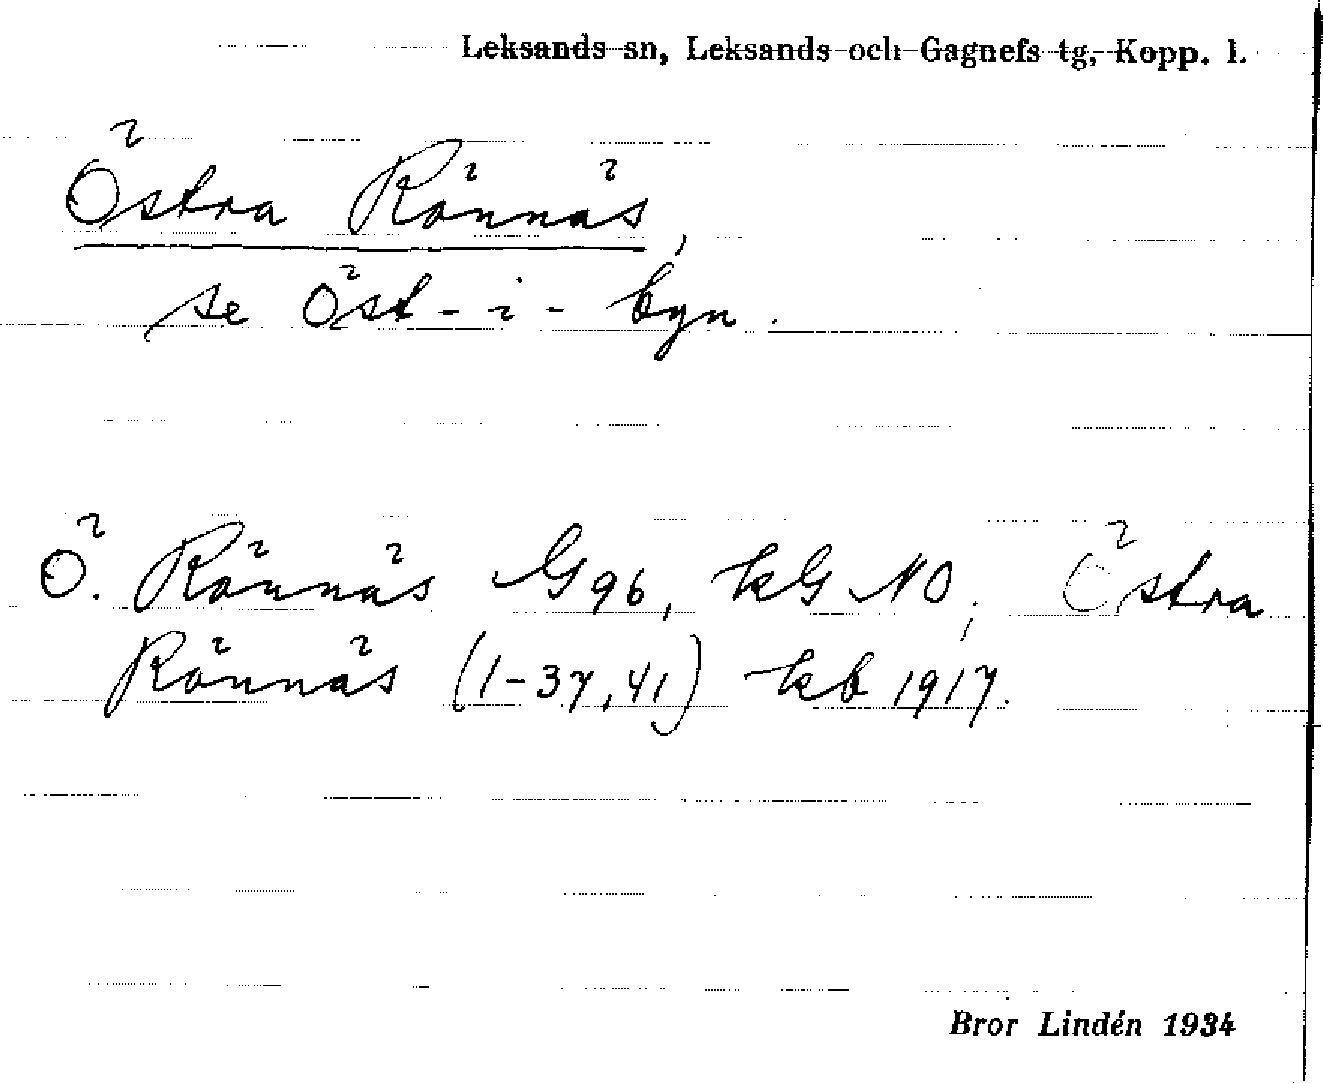 Leksands sn, Leksands och Gagnefs tg, Kopp. l.
Östra Rönnäs,
se Öst-i-byn.
Ö. Rönnäs G96, kG NO; Östra
Rönnäs (1-37, 41) kb 1917.
Bror Lindén 1934